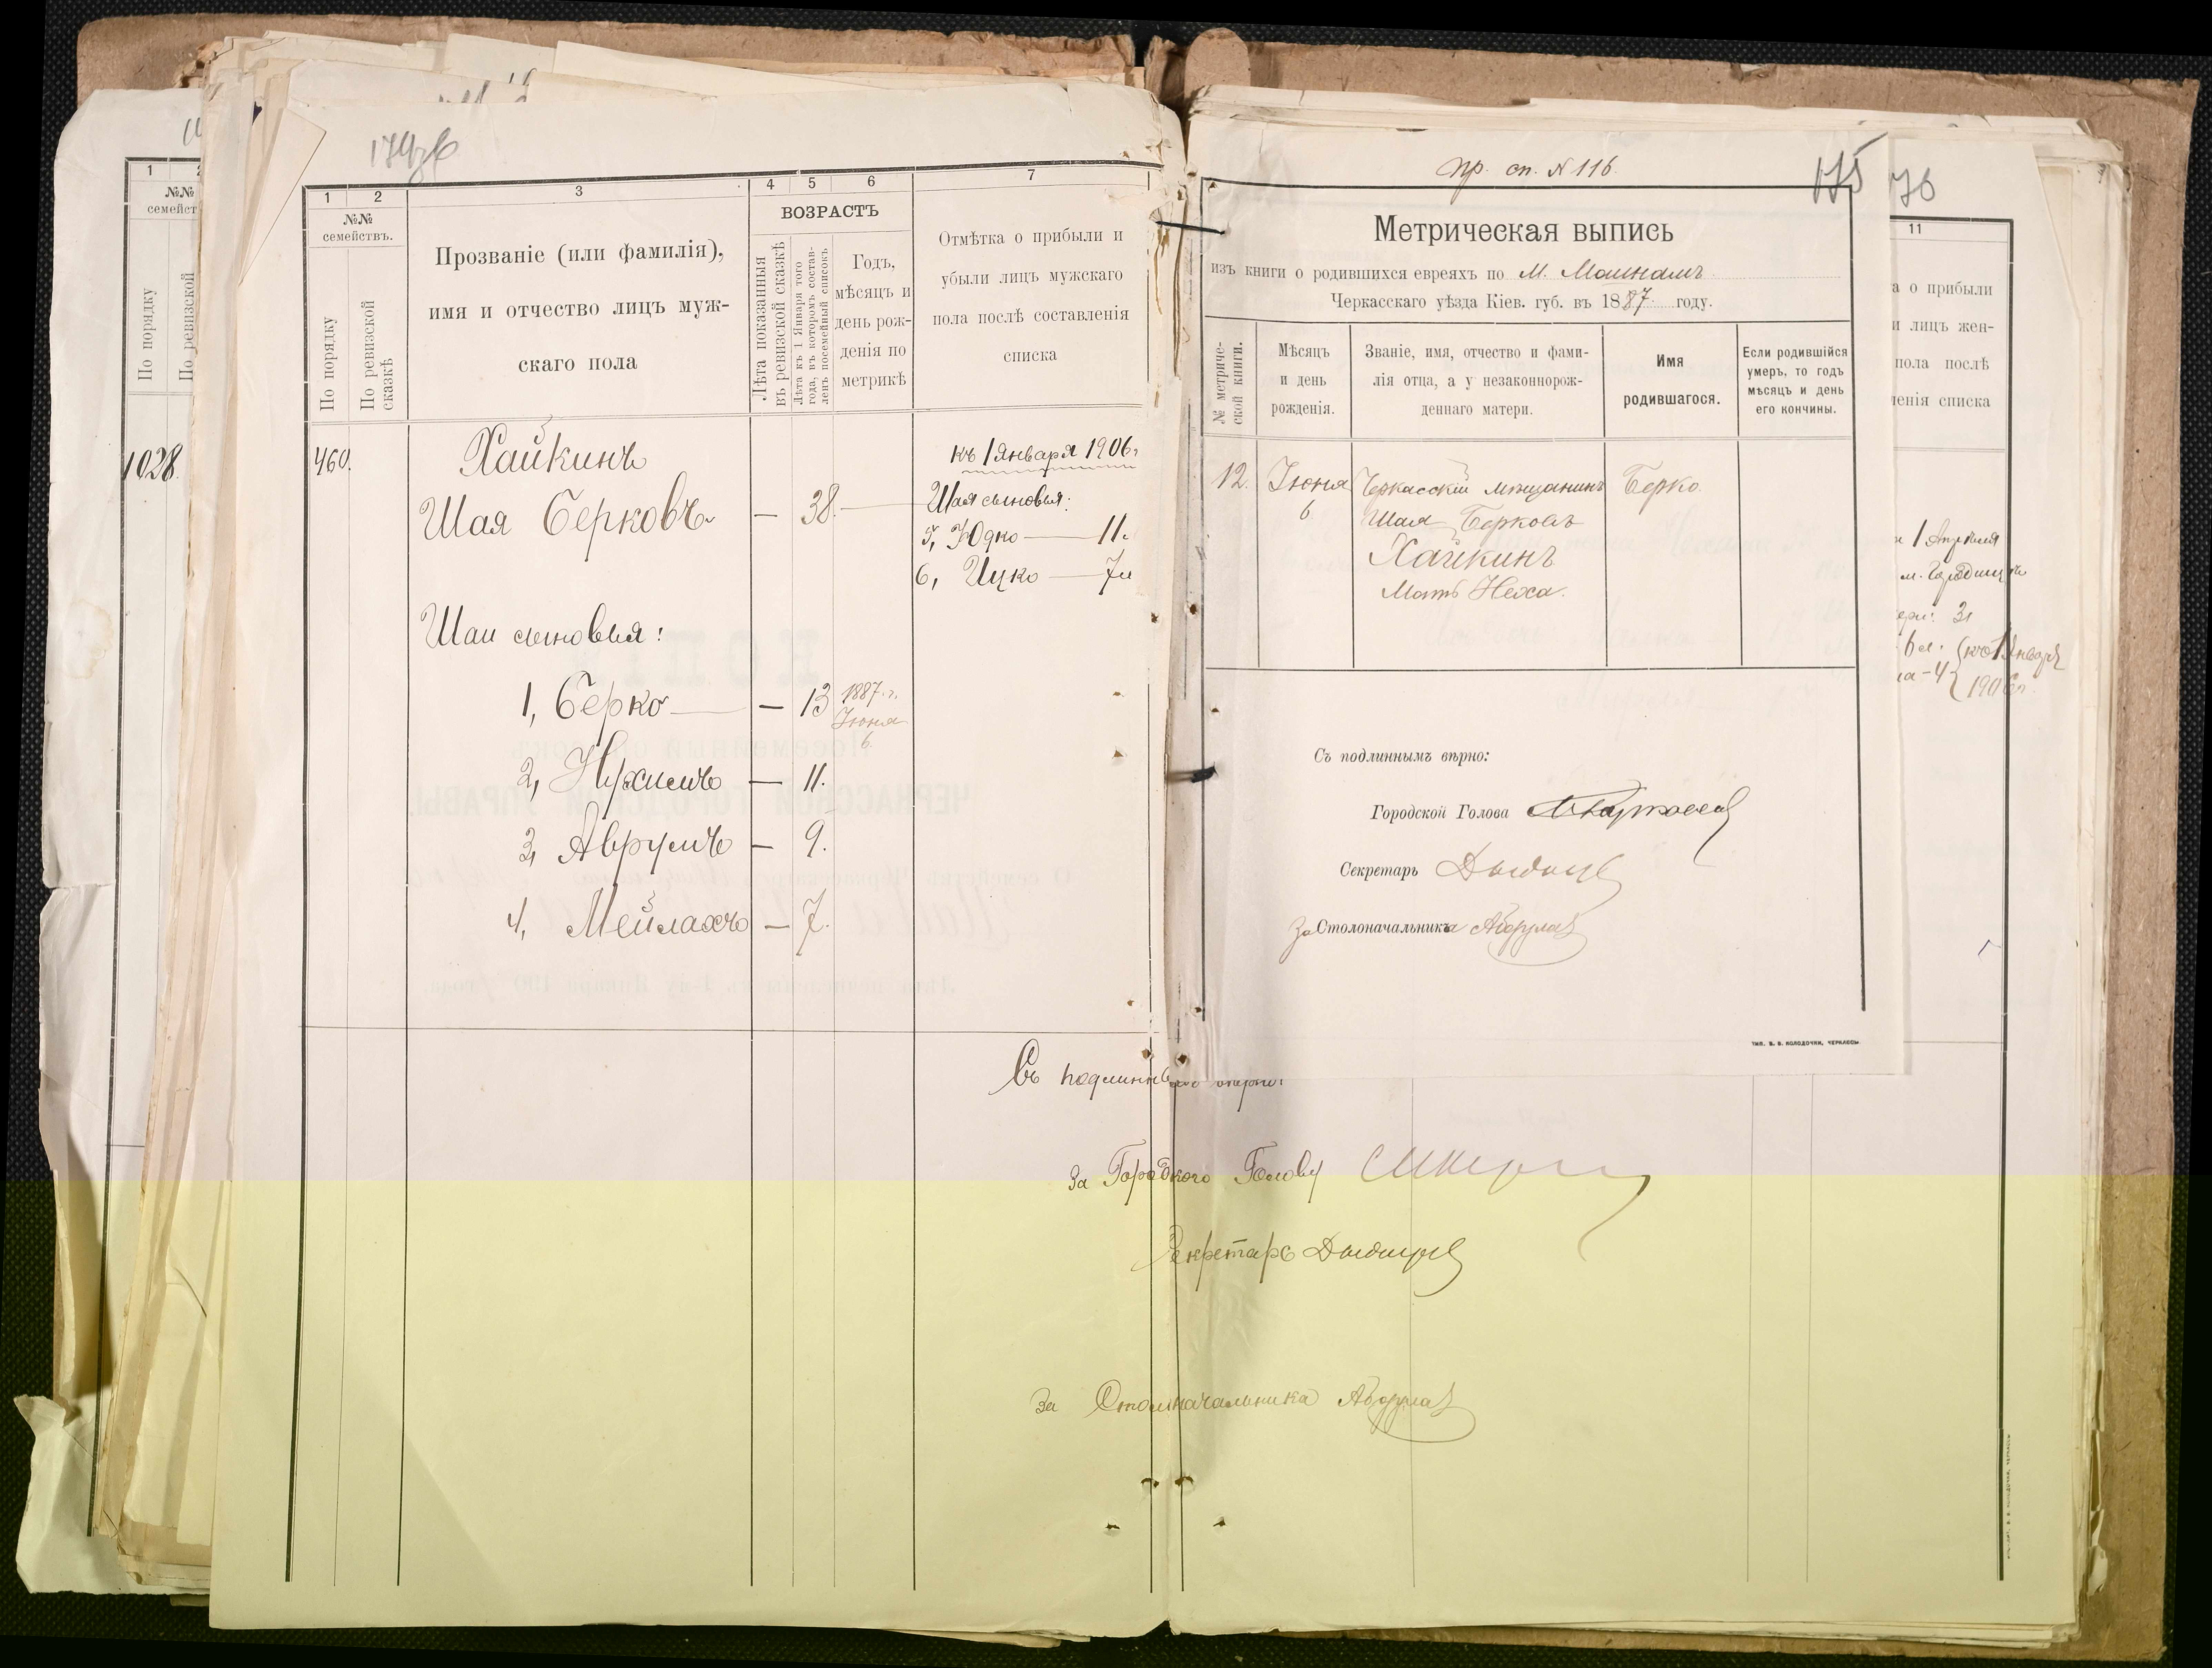 174 об
1
2
3
4
5
6
7
№№
семействъ.
По порядку
По ревизской
сказкѣ
Прозваніе (или фамилія),
имя и отчество лицъ муж-
скаго пола
ВОЗРАСТЪ
Лѣта показанныя
въ ревизской сказкѣ
Лѣта къ 1 Января того
года, въ которомъ состав-
ленъ посемейный списокъ
Годъ,
мѣсяцъ и
день рож-
денія по
метрикѣ
Отмѣтка о прибыли и
убыли лицъ мужскаго
пола послѣ составленія
списка
460.
Хайкинъ
Шая Берковъ — 38.
Шаи сыновья:
1, Берко — 13 1887 г.
Іюня
6.
2, Нухимъ — 11.
3, Аврумъ — 9.
4, Мейлахъ — 7.
къ 1 Января 1906 г.
Шая сыновья:
5, Юдко — 11.
6, Ицко — 7
Съ подлиннымъ вѣрно:
За Городского Голову
Секретарь
За Столоначальника
1
2
№№
семейст
По порядку
По ревизской
1028
пр. сп. № 116.
175
Метрическая выпись
изъ книги о родившихся евреяхъ по М. Машнамъ
Черкасскаго уѣзда Кіев. губ. въ 1887 году.
№ метриче-
ской книги.
Мѣсяцъ
и день
рожденія.
Званіе, имя, отчество и фами-
лія отца, а у незаконнорож-
деннаго матери.
Имя
родившагося.
Если родившійся
умеръ, то годъ
мѣсяцъ и день
его кончины.
12.
Іюня
6
Черкасскій мѣщанинъ
Шая Берковъ
Хайкинъ
Мать Неха.
Берко.
Съ подлиннымъ вѣрно:
Городской Голова
Секретарь
За Столоначальника
ТИП. В. В. КОЛОДОЧКИ, ЧЕРКАССЫ
76
11
а о прибыли
и лицъ жен-
пола послѣ
ленія списка
1 Апрѣля
м. Городищѣ
3
(къ 1 Января
1906 г.